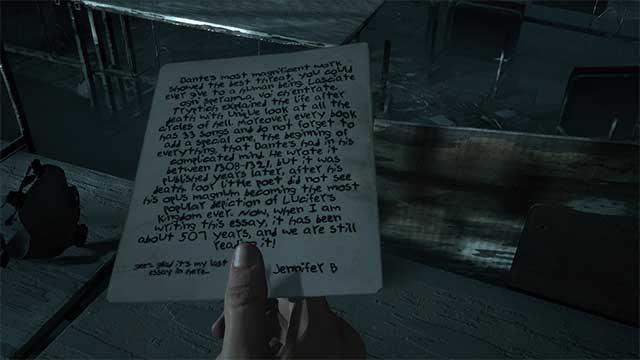 Dante's most magnificent work
showed the best threat, you could
ever give to a human being Lasciate
ogni speranza, voi ch'entrate.
Tryptich explained the life after
death with unique look at all the
circles of hell. Moreover, every book
has 33 songs and do not forget to
add a special one, the beginning of
everything that Dante's had in his
complicated mind. He wrote it
between 1308-1321, but it was
published years later, after his
death. Poor little poet did not see
his opus magnum becoming the most
popular depiction of Lucifer's
kingdom ever. Now, when I am
writing this essay, it has been
about 507 years, and we are still
reading it!
glad it's my last
essay in here...
Jennifer B